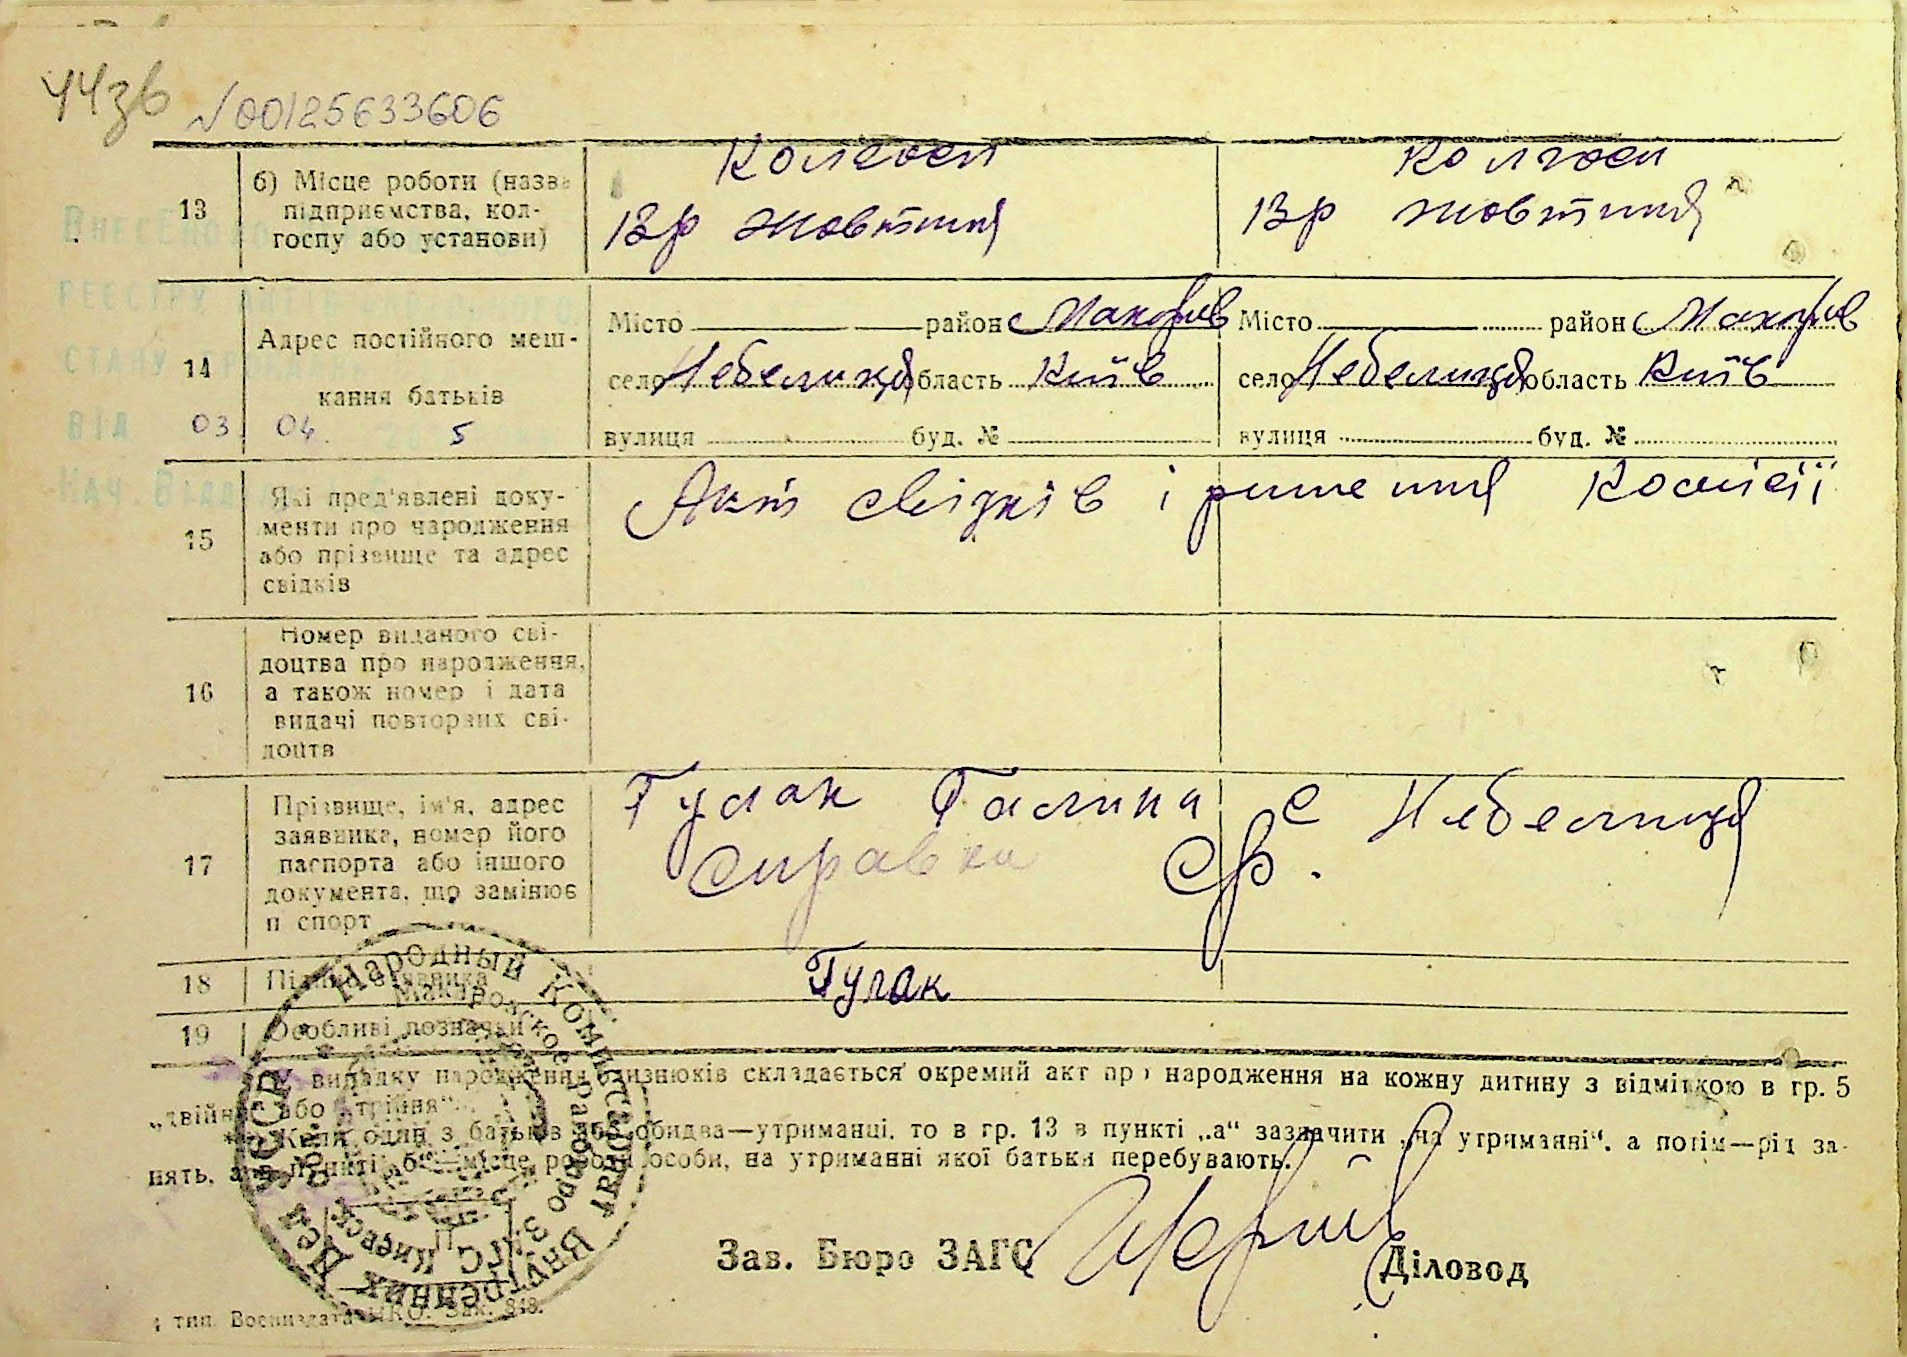 №00125633606
13
б) Місце роботи (назва
підприємства, кол-
госпу або установи)
Колгосп
13 р Жовтння
Колгосп
13 р Жовтння
Внесено до
реєстру актів цивільного
стану громадян
від 03 04. 5
Нач. Відділу
14
Адрес постійного меш-
кання батьків
Місто район Макарів
село Небелиця область Київ
вулиця буд. №
Місто район Макарів
село Небелиця область Київ
вулиця буд. №
15
Які пред'явлені доку-
менти про народження
або прізвище та адрес
свідків
Акт свідків і ришення Комісії
16
Номер виданого сві-
доцтва про народження,
а також номер і дата
видачі повторних сві-
доцтв
17
Прізвище, ім'я, адрес
заявника, номер його
паспорта або іншого
документа, що замінює
п спорт
Гулак Галина с Небелиця
справка ср.
18
Підпис заявника
Гулак
19
Особливі позначки
У випадку народження близнюків складається окремий акт про народження на кожну дитину з відміткою в гр. 5
„двійня“ або „трійня“.
** Коли один з батьків або обидва—утриманці, то в гр. 13 в пункті „а“ зазначити „на утриманні“, а потім—рід за-
нять, а в пункті „б“ місце роботи особи, на утриманні якої батьки перебувають.
Народный Комиссариат Внутренних Дел УССР
Макаровское райбюро ЗАГС Киевск. обл.
Зав. Бюро ЗАГС
Діловод
тип. Воениздата НКО. Зак. 848.